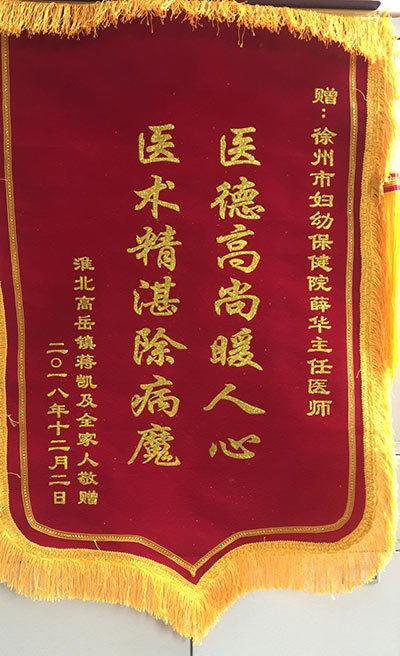 赠：徐州市妇幼保健院薛华主任医师
医德高尚暖人心
医术精湛除病魔
淮北高岳镇蒋凯及全家人敬赠
二〇一八年十二月二日